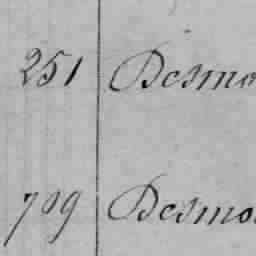 251 Desmo
709 Desmo